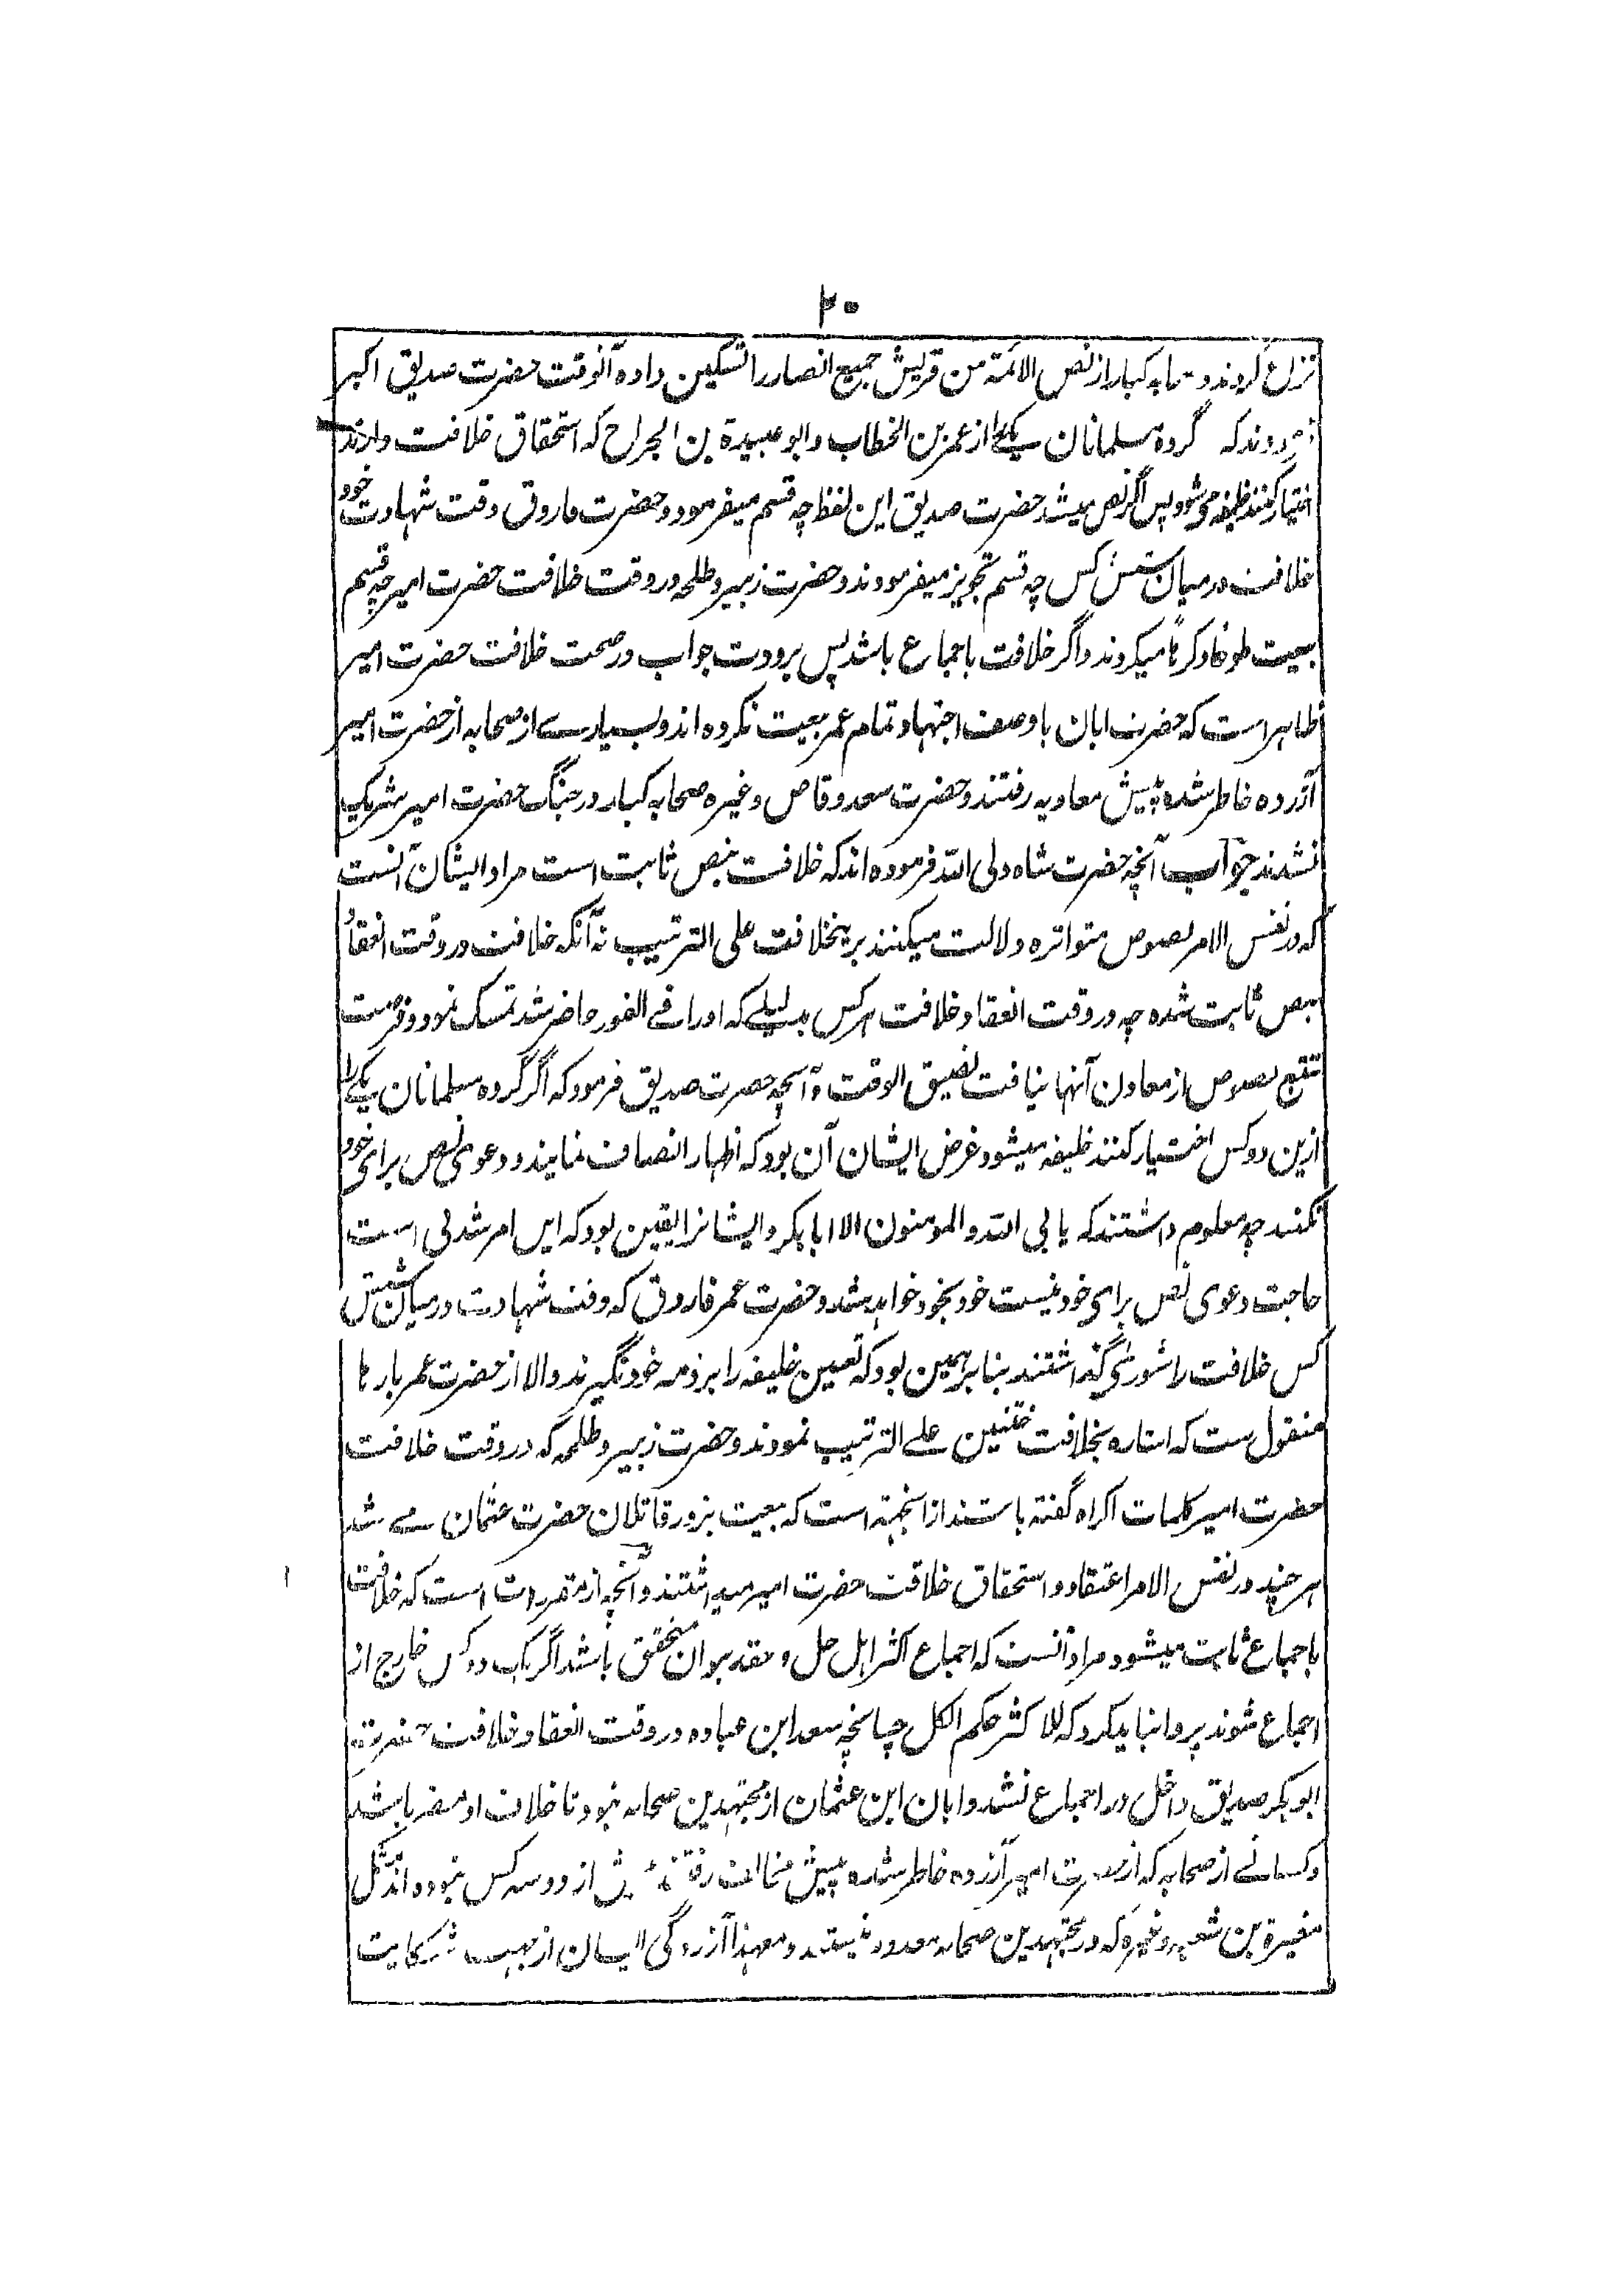 ۲۰
نزاع کردند و صحابه کبار از نص الائمة من قریش جمیع انصار را تسکین داده آنوقت حضرت صدیق اکبر
فرمودند که گروه مسلمانان یکے را از عمر بن الخطاب و ابو عبیدة بن الجراح که استحقاق خلافت دارند
اختیار کنند خلیفه می شود پس اگر نص میشد حضرت صدیق این لفظ چه قسم میفرمود و حضرت فاروق وقت شهادت خود
خلافت درمیان شش کس چه قسم تجویز میفرمودند و حضرت زبیر و طلحه در وقت خلافت حضرت امیر چه قسم
بیعت طوعا و کرها میکردند و اگر خلافت باجماع باشد پس بر دوت جواب در صحت خلافت حضرت امیر
ظاهر است که حضرت ابان باوصف اجتهاد تمام عمر بیعت نکرده اند و بسیارے از صحابه از حضرت امیر
آزرده خاطر شده پیش معاویه رفتند و حضرت سعد وقاص وغیره صحابه کبار در جنگ حضرت امیر شریک
نشدند جواب آنچه حضرت شاه ولی الله فرموده اند که خلافت بنص ثابت است مراد ایشان آنست
که در نفس الامر نصوص متواتره دلالت میکنند برینخلافت علی الترتیب نه آنکه خلافت در وقت انعقاد
بنص ثابت شده چه در وقت انعقاد خلافت هر کس بدلیلے که او را فے الفور حاضر شد تمسک نمود و فرصت
تتبع نصوص از معادن آنها نیافت لضیق الوقت و آنچه حضرت صدیق فرمود که اگر گروه مسلمانان یکے را
ازین دو کس اختیار کنند خلیفه میشود غرض ایشان آن بود که اظهار انصاف نمایند و دعوی نص برای خود
نکنند چه معلوم داشتند که یابی الله والمومنون الا ابا بکر و ایشانرا یقین بود که این امر شدنی است
حاجت دعوی نص برای خود نیست خود بخود خواهد شد و حضرت عمر فاروق که وقت شهادت درمیان شش
کس خلافت را شوری گذاشتند بنا بر همین بود که تعیین خلیفه را بر ذمه خود نگیرند والا از حضرت عمر بارها
منقول ست که اشاره بخلافت ختنین علے الترتیب نمودند و حضرت زبیر و طلحه که در وقت خلافت
حضرت امیر کلمات اکراه گفته باشند از انجهة است که بیعت بزور قاتلان حضرت عثمان مے شد
هر چند در نفس الامر اعتقاد و استحقاق خلافت حضرت امیر میداشتند و آنچه از مقررات است که خلافت
باجماع ثابت میشود مراد آنست که اجماع اکثر اهل حل و عقد بران متحقق باشد اگر یک دو کس خارج از
اجماع شوند پروا نباید کرد که للاکثر حکم الکل چنانچه سعد ابن عباده در وقت انعقاد خلافت حضرت
ابو بکر صدیق داخل در اجماع نشد و ابان ابن عثمان از مجتهدین صحابه نبود تا خلاف او مضر باشد
و کسانے از صحابه که از حضرت امیر آزرده خاطر شده پیش مخالف رفتند بیش از دو سه کس نبوده اند مثل
مغیرة بن شعبه وغیره که در مجتهدین صحابه معدود نیستند و معهذا آزردگی ایشان از جهت شکایت